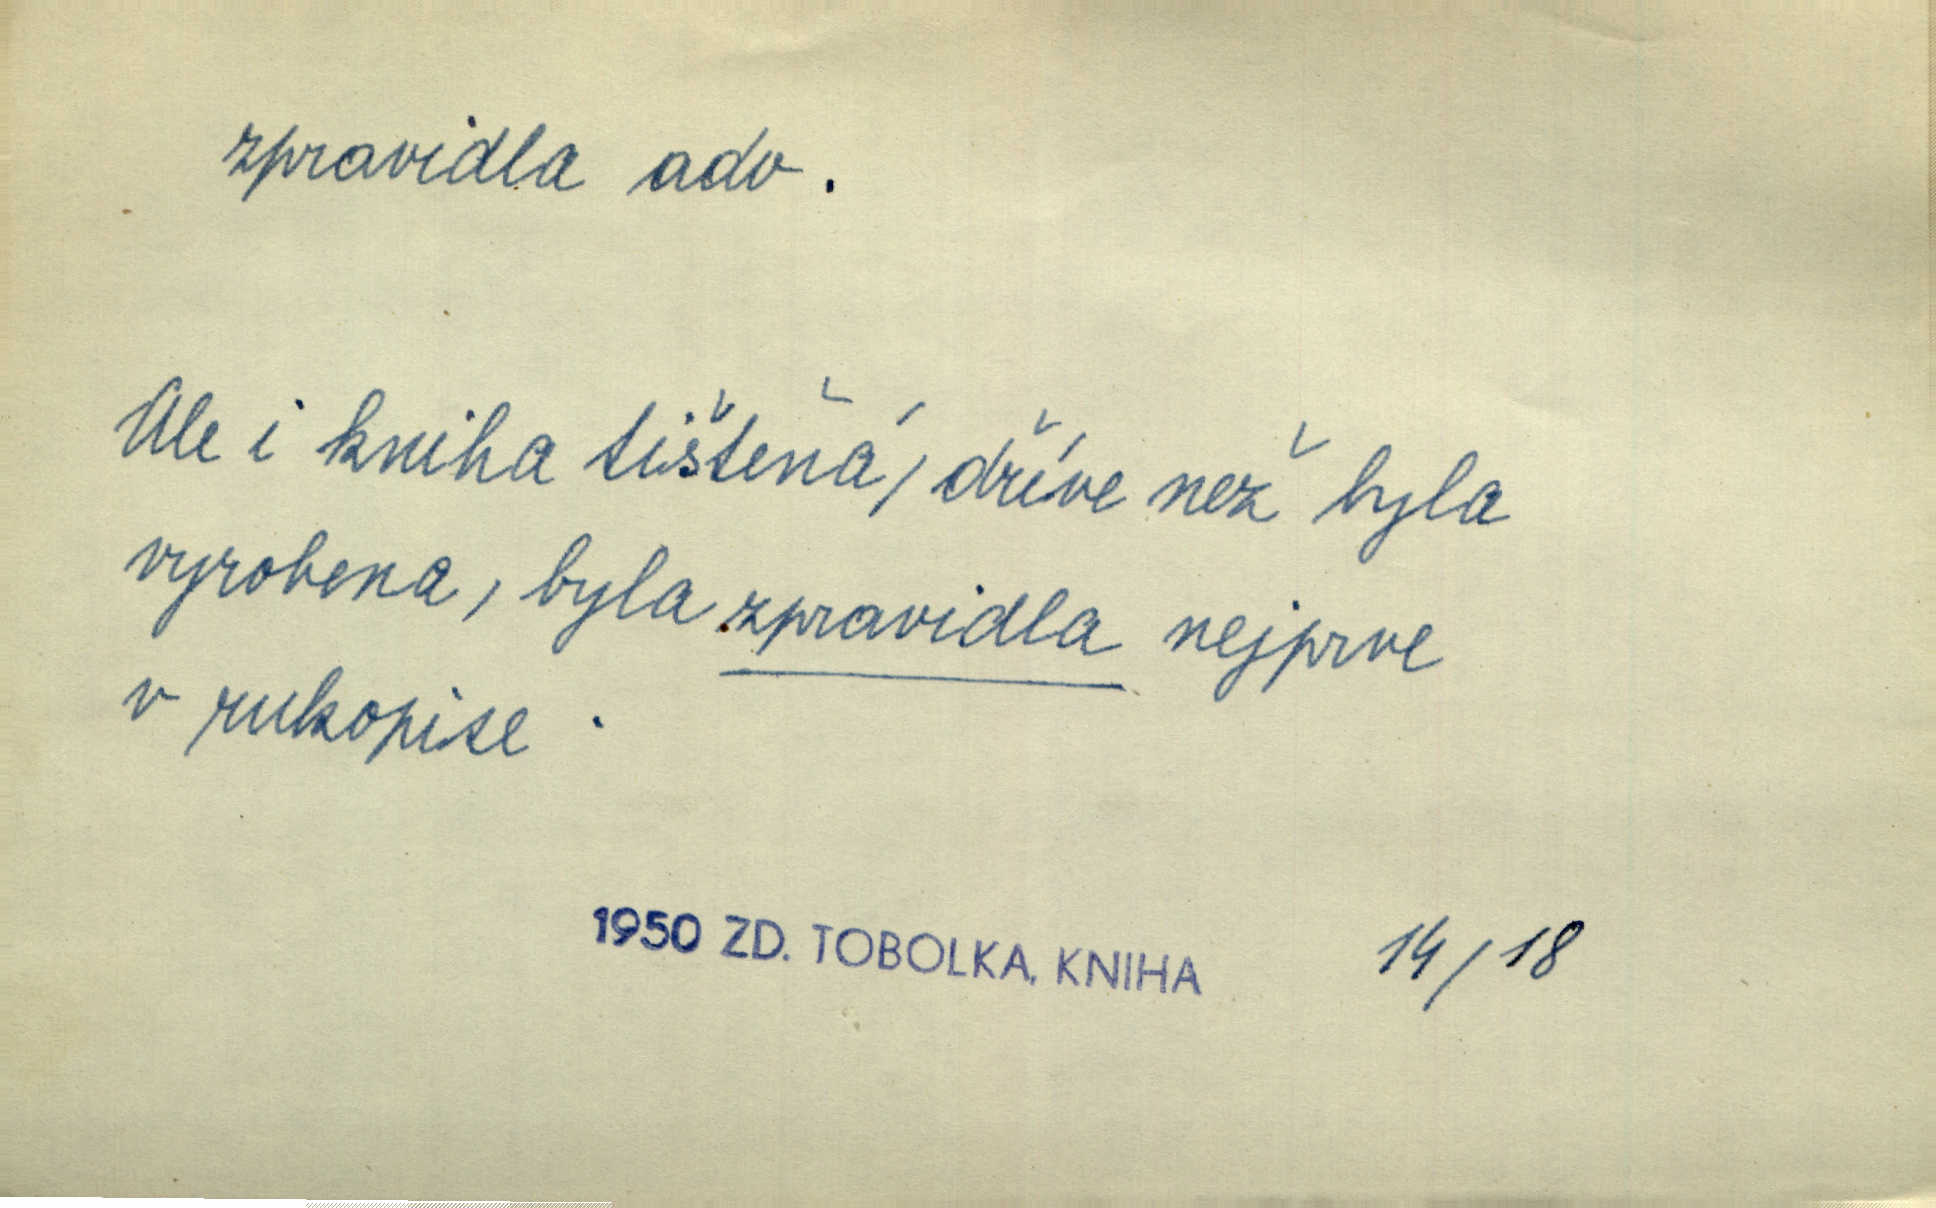 zpravidla adv.
Ale i kniha tištěná, dříve než byla
vyrobena, byla zpravidla nejprve
v rukopise.
1950 ZD. TOBOLKA, KNIHA 14/18